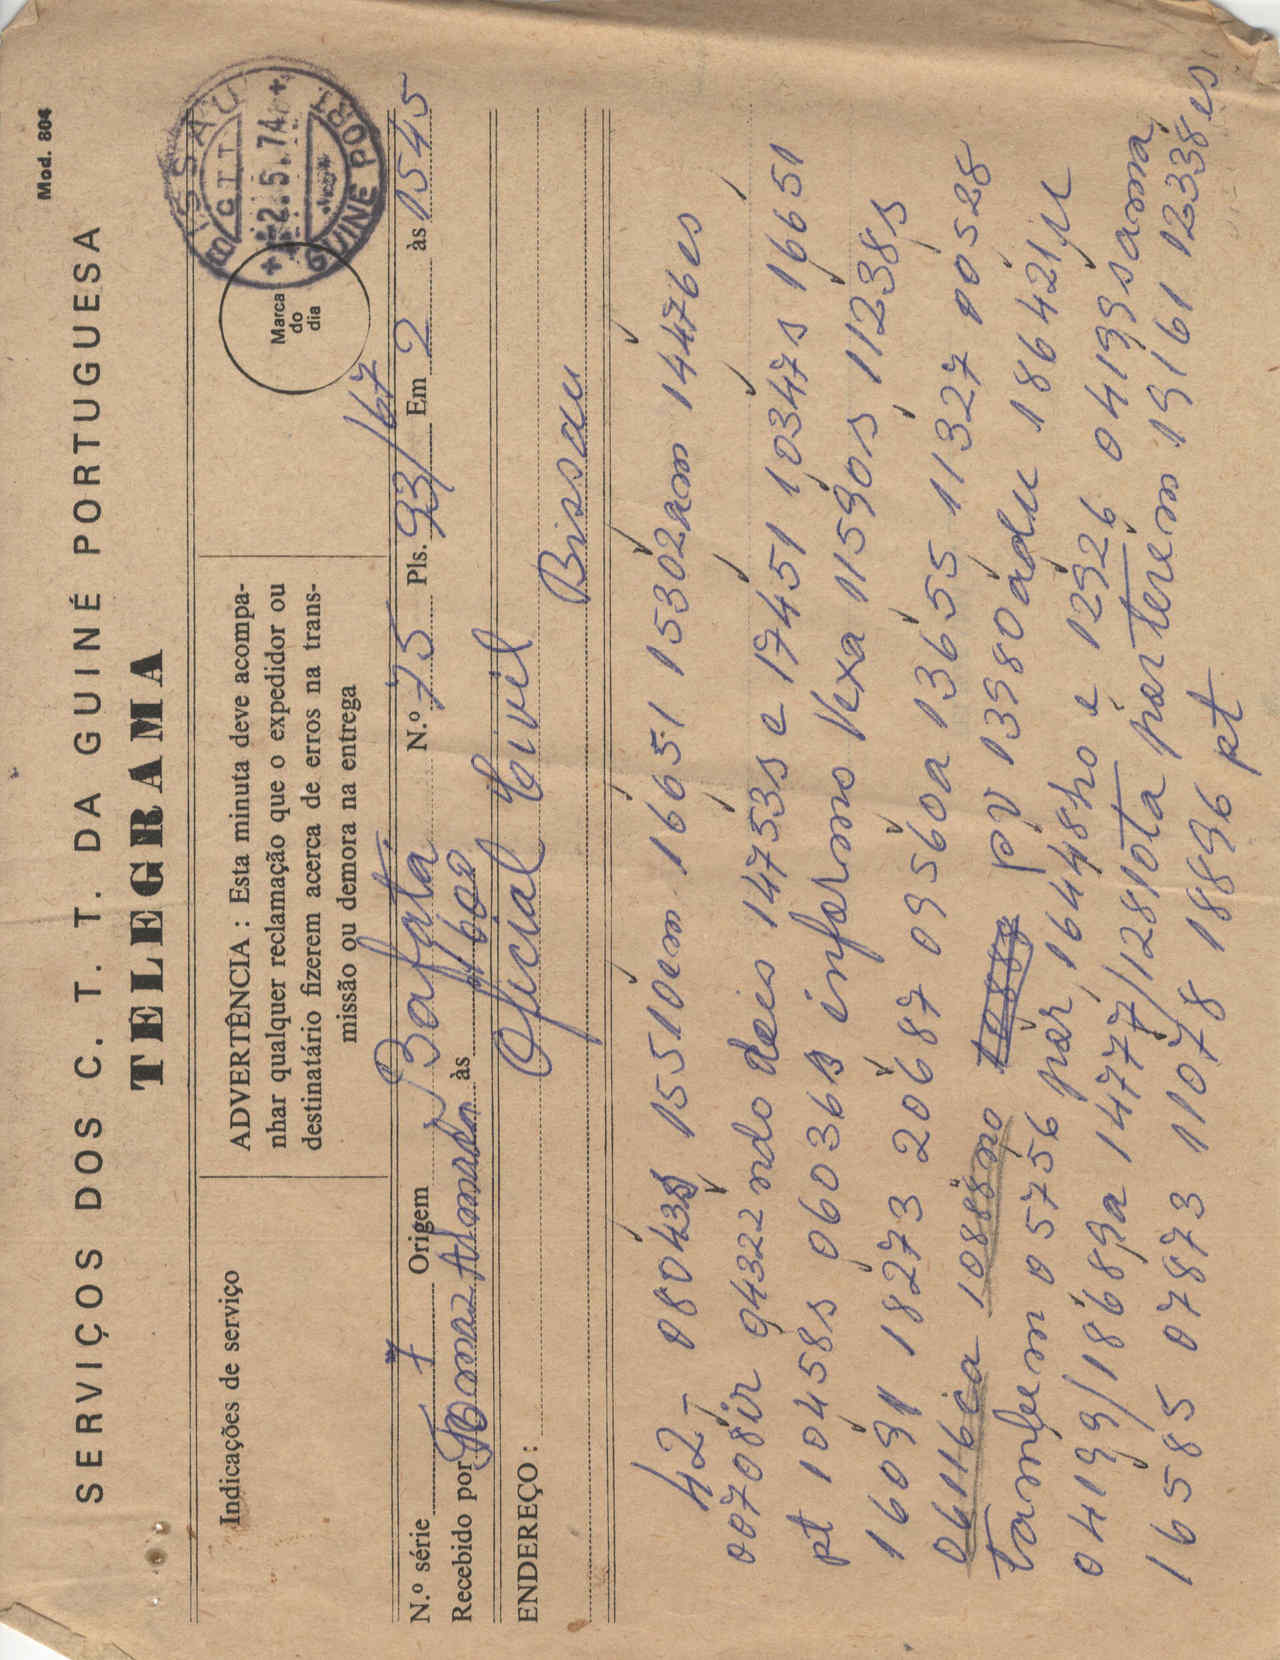 Mod. 804
SERVIÇOS DOS C. T. T. DA GUINÉ PORTUGUESA
TELEGRAMA
Indicações de serviço
ADVERTÊNCIA : Esta minuta deve acompa-
nhar qualquer reclamação que o expedidor ou
destinatário fizerem acerca de erros na trans-
missão ou demora na entrega
Marca
do
dia
BISSAU
CTT
-2.5.74
GUINÉ PORT.
N.º série 7 Origem Bafata N.º 75 Pls. 93/67 Em 2 às 1545
Recebido por às 1600
ENDEREÇO : Oficial Civil
Bissau
42- 08043s 15510em 16651 15302am 14476es
00708ir 94322ndo deis 14753s e 17451 10347s 16651
pt 10458s 06036s informo Vexa 11590s 11238s
16091 18273 20687 09560a 13655 11327 00528
06116ca 10888no pv 13980adu 186421u
tambem 05756 por 16448ho e 12926 04199sama
04199/18689a 14777/12810ta por terem 19161 12338es
16585 07873 11078 18896 pt